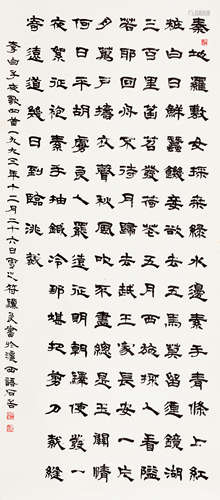 秦地羅敷女採桑綠水邊素手青條上紅
粧白日鮮蠶飢妾欲去五馬莫留連鏡湖
三百里菡萏發荷花五月西施採人看隘
若耶回舟不待月歸去越王家長安一片
月萬戶擣衣聲秋風吹不盡總是玉關情
何日平胡虜良人罷遠征明朝驛使發一
夜絮征袍素手抽鍼冷那堪把剪刀裁縫
寄遠道幾日到臨洮
李白子夜歌四首一九九三年十二月二十六日符驥良書於滬西語石